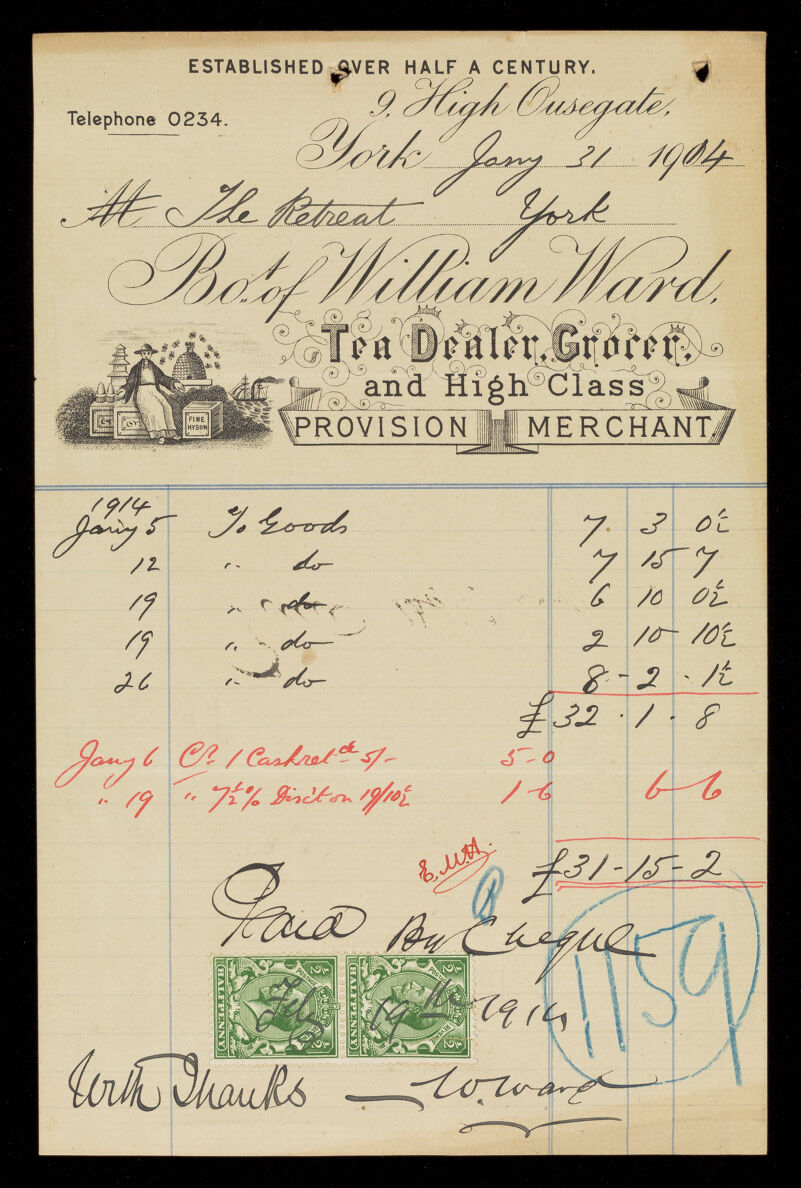 ESTABLISHED OVER HALF A CENTURY.
9, High Ousegate,
Telephone 0234.
York Jany 31 1904
The Retreat York
Bot. of William Ward,
Tea Dealer, Grocer,
and High Class
FINE HYSON
PROVISION MERCHANT.
1914
Jany 5 To Goods 7 3 0½
12 " do 7 15 7
19 " do 6 10 0½
19 " do 2 10 10½
26 " do 8 - 2 - 1½
£32 . 1 . 8
Jany 6 Cr 1 Cask retd 5/- 5-0
" 19 " 7½% Disct on 19/10½ 1-6 6-6
E.M.H. £31-15-2
Paid By Cheque
1159
½ POSTAGE ½
HALFPENNY
½ POSTAGE ½
HALFPENNY
Feby 19th 1914
With Thanks — W. Ward